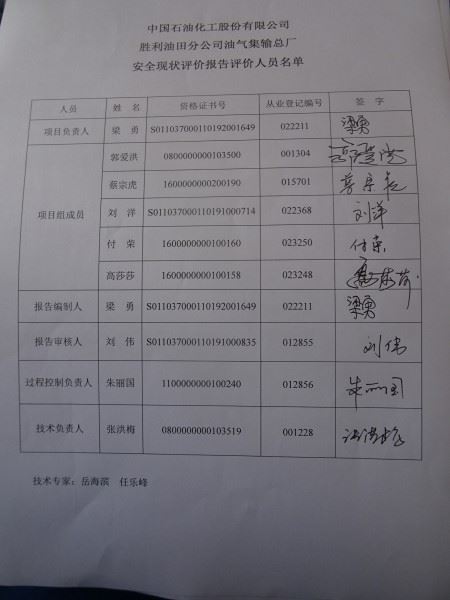 中国石油化工股份有限公司
胜利油田分公司油气集输总厂
安全现状评价报告评价人员名单
人员 姓 名 资格证书号 从业登记编号 签 字
项目负责人 梁 勇 S011037000110192001649 022211 梁勇
郭爱洪 0800000000103500 001304
蔡宗虎 1600000000200190 015701
项目组成员 刘 洋 S011037000110191000714 022368 刘洋
付 荣 1600000000100160 023250 付荣
高莎莎 1600000000100158 023248
报告编制人 梁 勇 S011037000110192001649 022211 梁勇
报告审核人 刘 伟 S011037000110191000835 012855 刘伟
过程控制负责人 朱丽国 1100000000100240 012856 朱丽国
技术负责人 张洪梅 0800000000103519 001228
技术专家：岳海滨 任乐峰